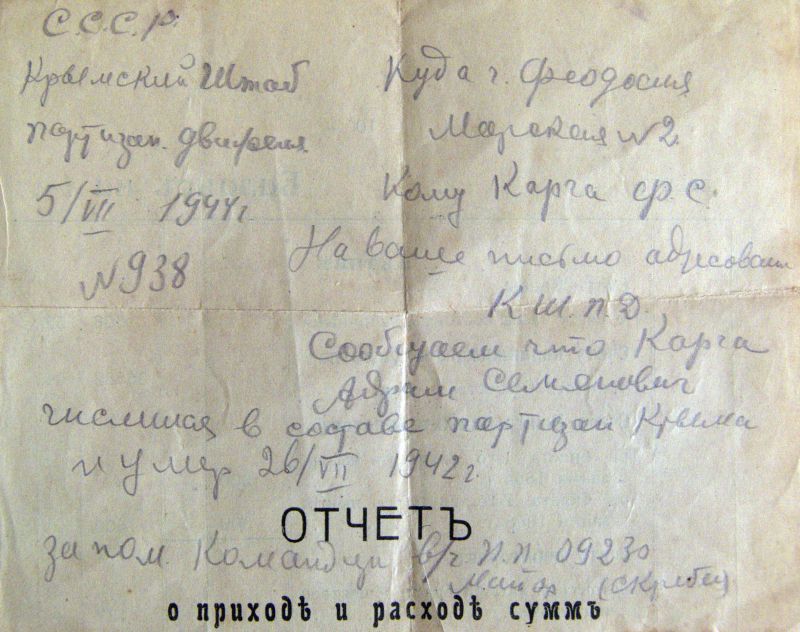 С.С.С.Р.
Крымский Штаб
партизан. движения
5/VII 1944г
№938
Куда г. Феодосия
Марская №2
Кому Карга Ф. С.
На ваше письмо адресован
К Ш.П.Д.
Сообщаем что Карга
Семенович
числился в составе партизан Крыма
и умер 26/VII 1942г.
ОТЧЕТЪ
за пом. Командира в/ч п.п 09230
Майор
о приходѣ и расходѣ суммъ